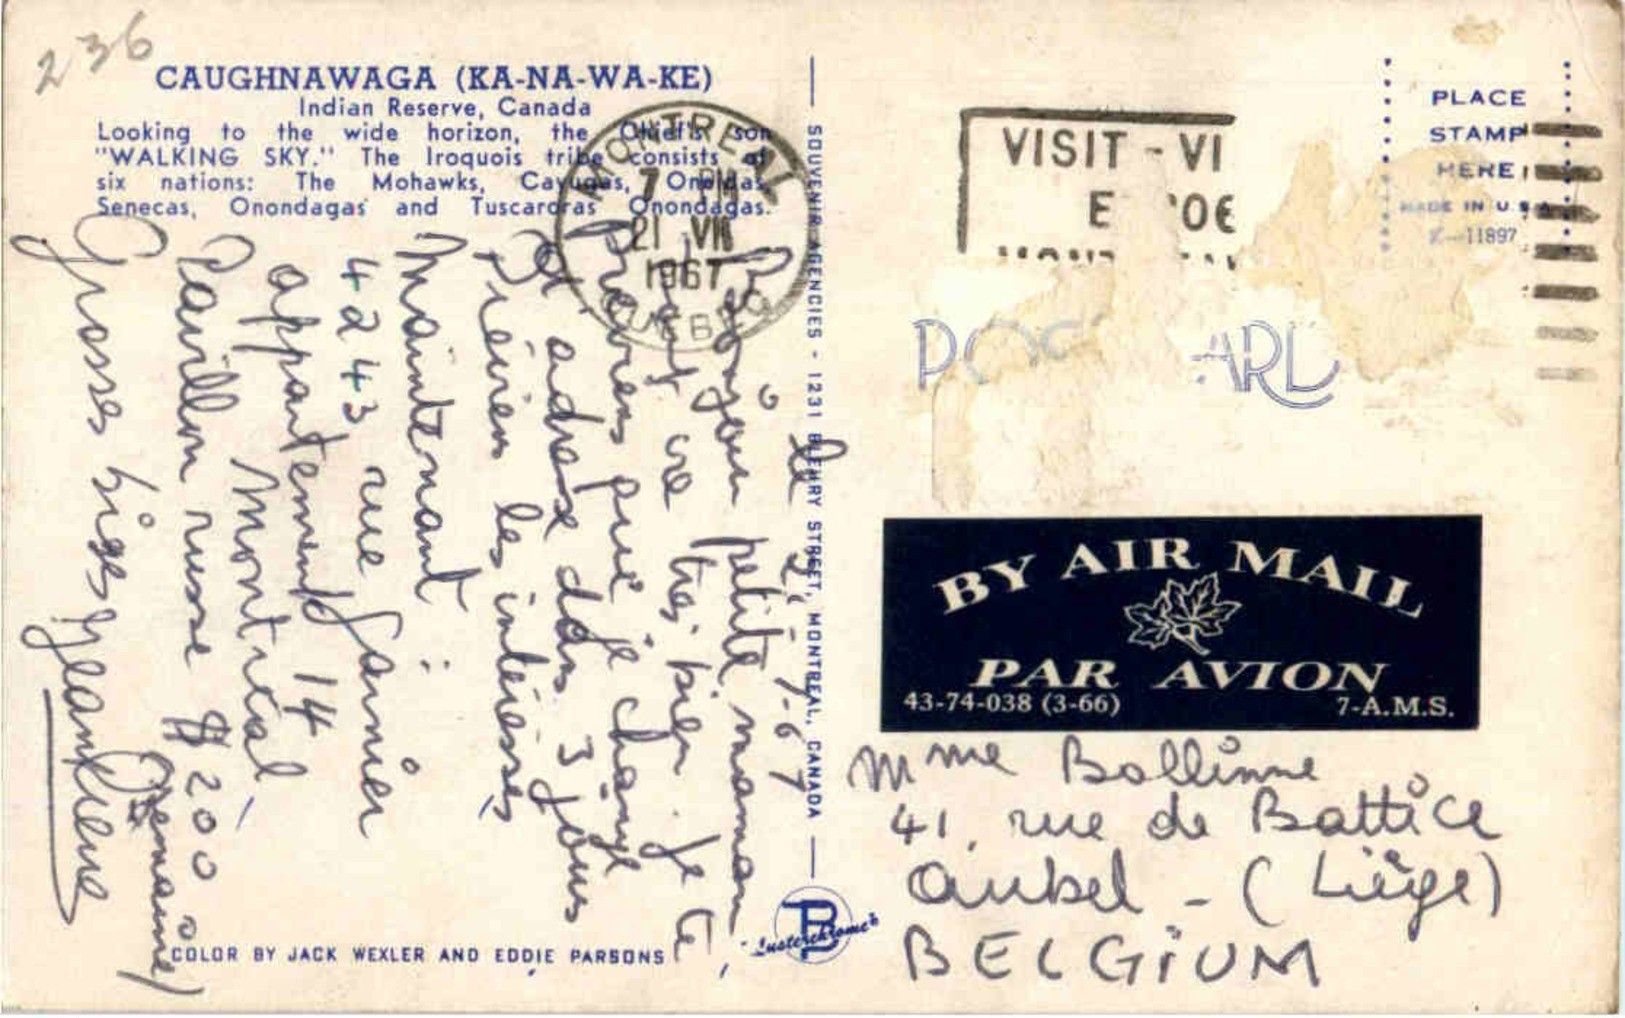 236
CAUGHNAWAGA (KA-NA-WA-KE)
Indian Reserve, Canada
Looking to the wide horizon, the Chief's son
"WALKING SKY." The Iroquois tribe consists of
six nations: The Mohawks, Cayugas, Oneidas,
Senecas, Onondagas and Tuscaroras Onondagas.
MONTREAL
7 PM
21 VII
1967
QUEBEC
le 21-7-67
Bonjour petite maman
Tout va très bien. Je te
préviens que je change
d'adresse dans 3 jours
Prévien les intéressés
Maintenant :
4243 rue Garnier
appartement 14
Montréal
Pavillon russe $ 200
Semaine)
Grosses bises Jeanlieue
COLOR BY JACK WEXLER AND EDDIE PARSONS
SOUVENIR AGENCIES - 1231 BLEURY STREET, MONTREAL, CANADA
"Lusterchrome"
VISIT - VI
E
PLACE
STAMP
HERE
MADE IN U.S.A.
K-11897
POS ARD
BY AIR MAIL
PAR AVION
43-74-038 (3-66) 7-A.M.S.
Mme Bollinne
41, rue de Battice
Aubel - (Liège)
BELGIUM